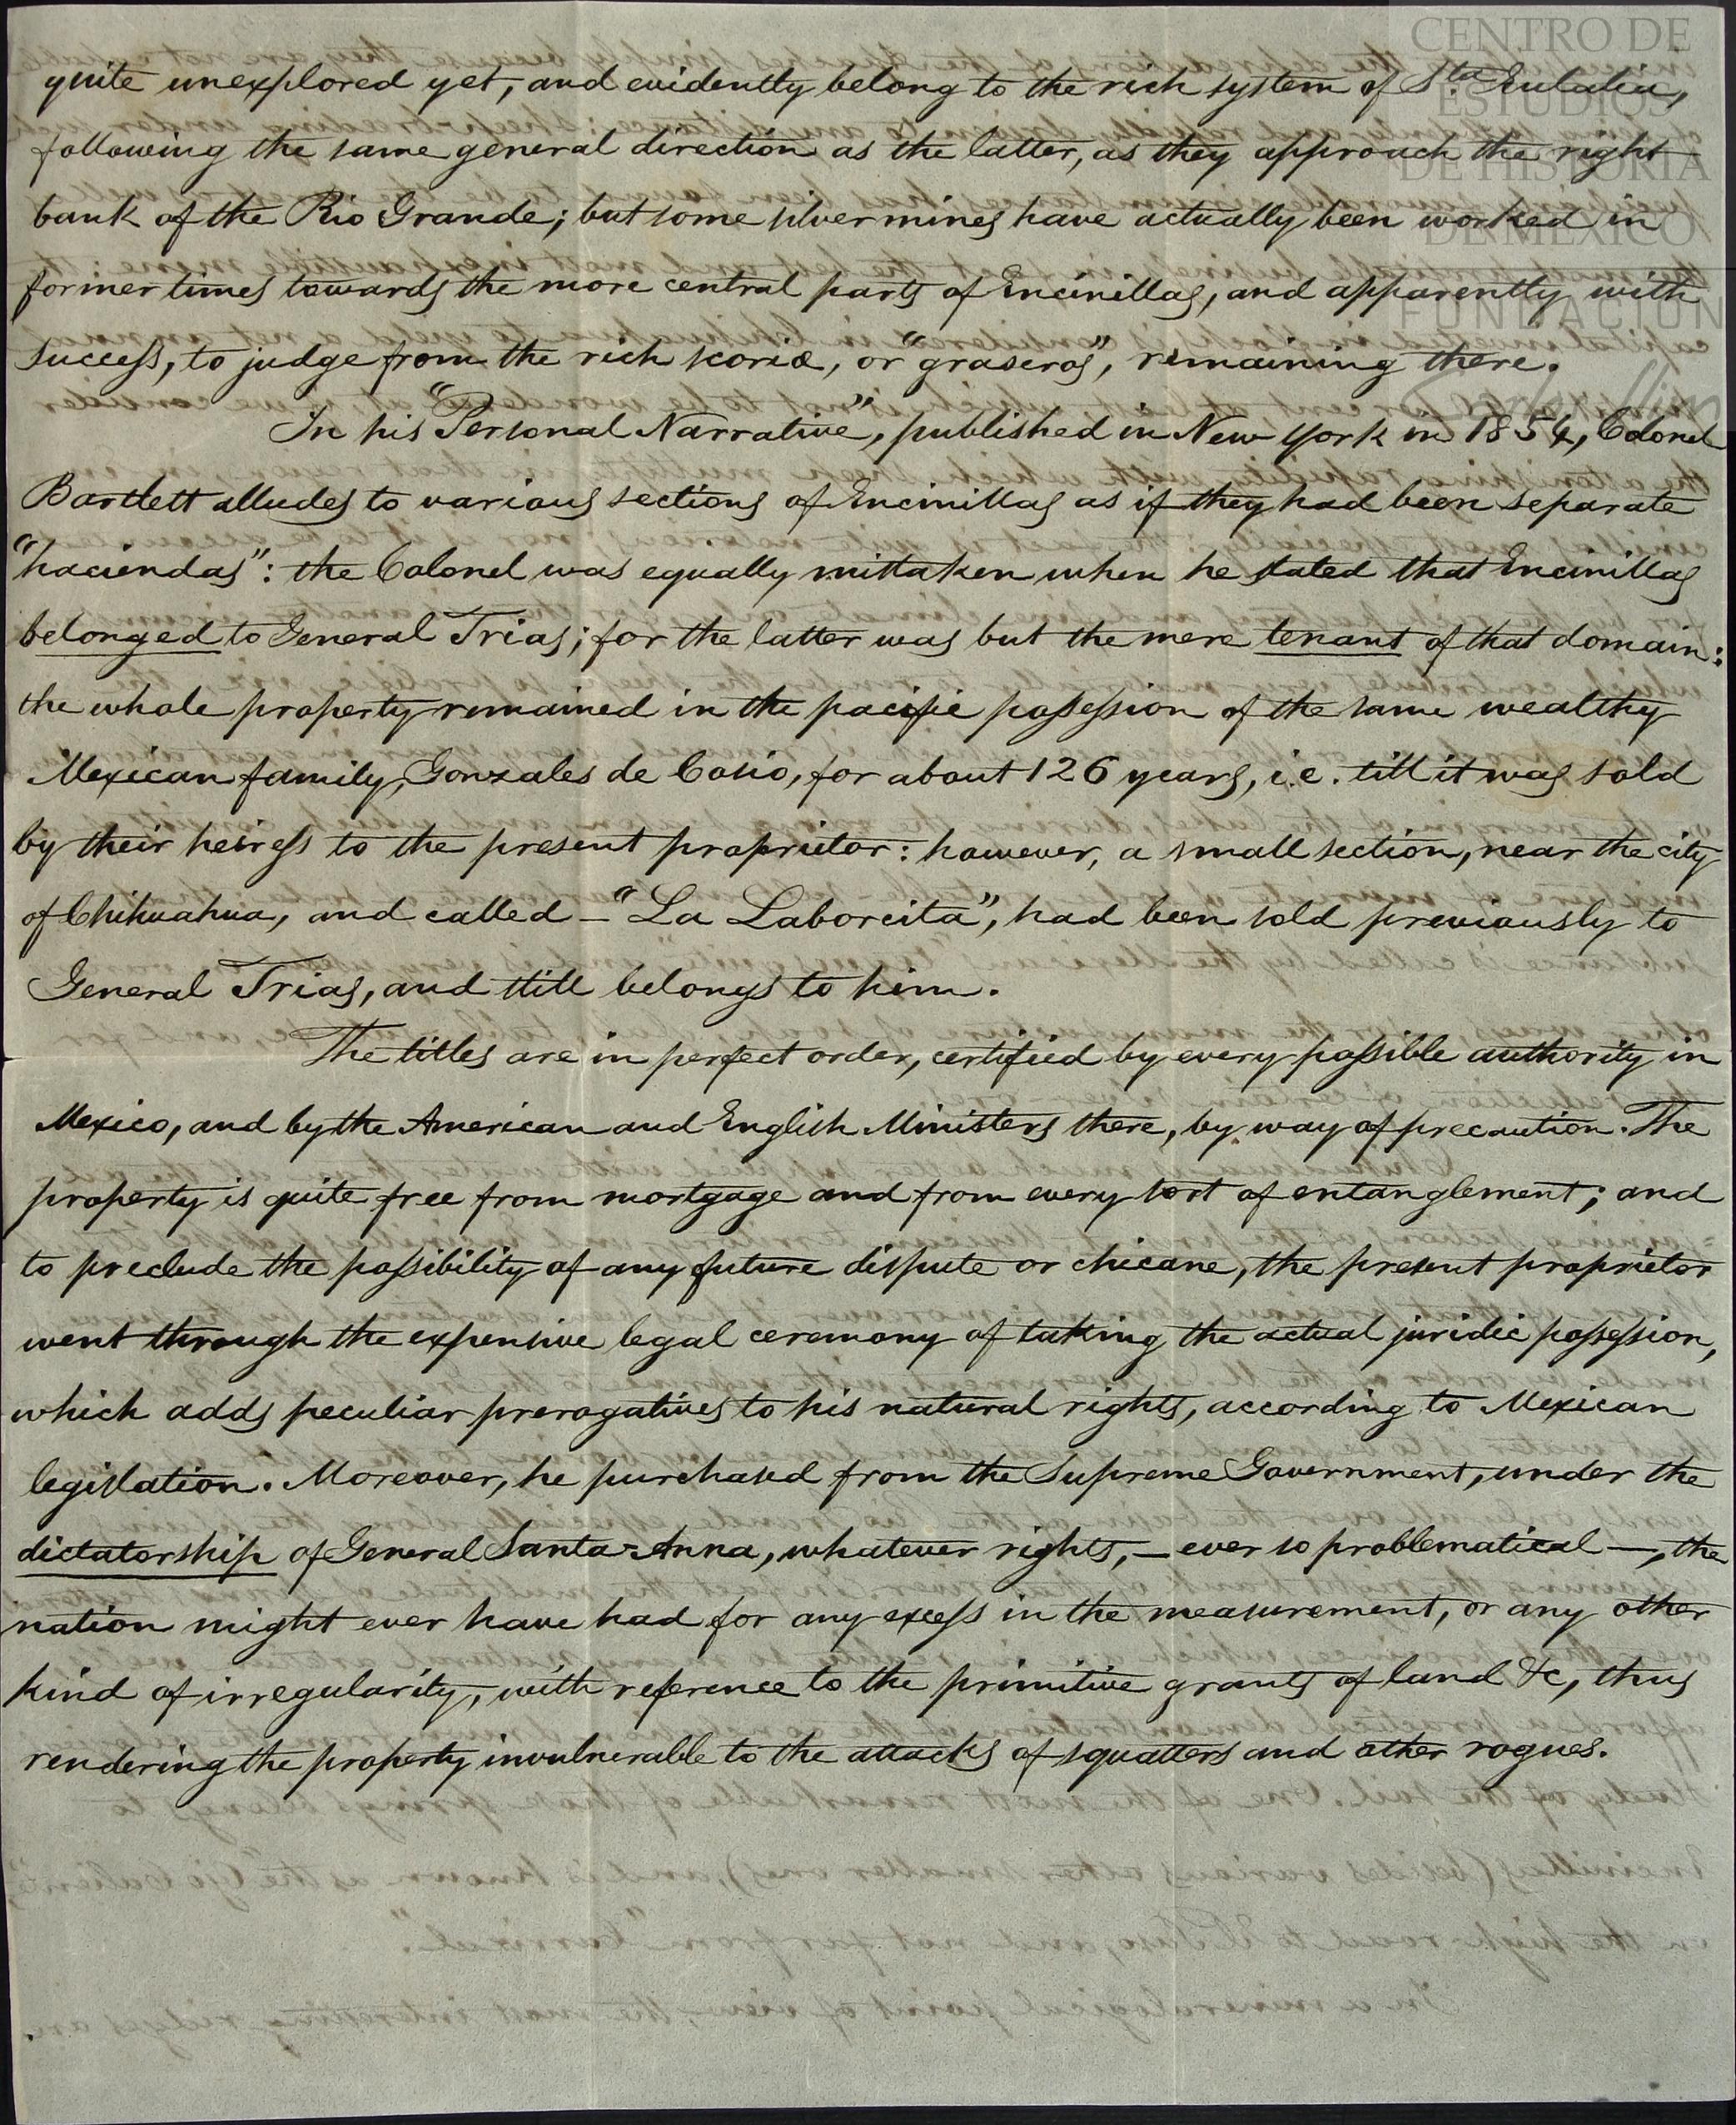 CENTRO DE
ESTUDIOS
DE HISTORIA
DE MEXICO
FUNDACIÓN
Carlos Slim
quite unexplored yet, and evidently belong to the rich system of Sta. Eulalia,
following the same general direction as the latter, as they approach the right
bank of the Rio Grande; but some silver mines have actually been worked in
former times towards the more central parts of Encinillas, and apparently with
success, to judge from the rich scoriæ, or "graseros", remaining there.
In his "Personal Narrative", published in New York in 1854, Colonel
Bartlett alludes to various sections of Encinillas as if they had been separate
"haciendas": the Colonel was equally mistaken when he stated that Encinillas
belonged to General Trias; for the latter was but the mere tenant of that domain:
the whole property remained in the pacific possession of the same wealthy
Mexican family, Gonzales de Cosio, for about 126 years, i.e. till it was sold
by their heiress to the present proprietor: however, a small section, near the city
of Chihuahua, and called – "La Laborcita", had been sold previously to
General Trias, and still belongs to him.
The titles are in perfect order, certified by every possible authority in
Mexico, and by the American and English Ministers there, by way of precaution. The
property is quite free from mortgage and from every sort of entanglement; and
to preclude the possibility of any future dispute or chicane, the present proprietor
went through the expensive legal ceremony of taking the actual juridic possession,
which adds peculiar prerogatives to his natural rights, according to Mexican
legislation. Moreover, he purchased from the Supreme Government, under the
dictatorship of General Santa-Anna, whatever rights, – ever so problematical –, the
nation might ever have had for any excess in the measurement, or any other
kind of irregularity, with reference to the primitive grants of land &c, thus
rendering the property invulnerable to the attacks of squatters and other rogues.